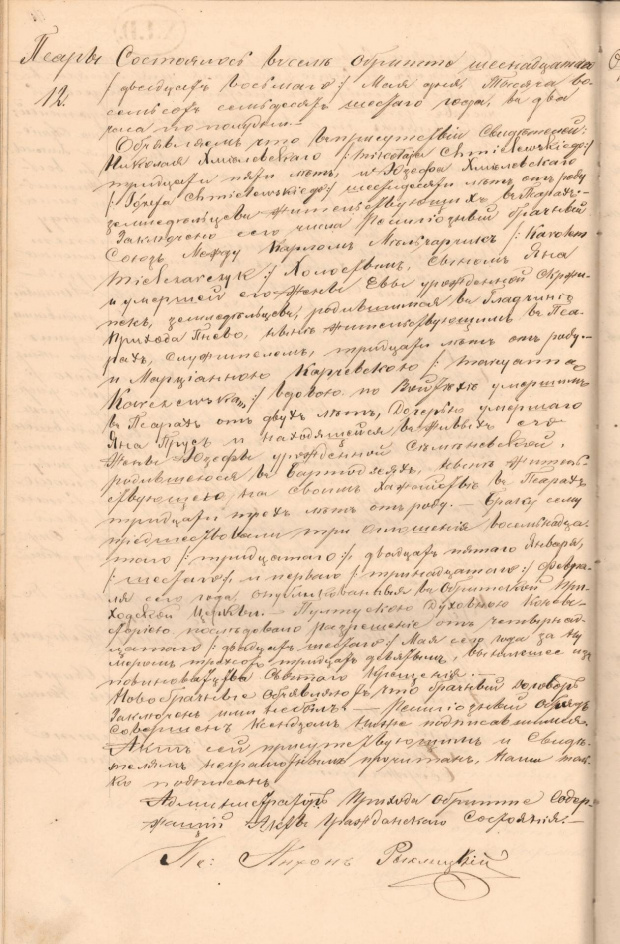 Псары
12.
Состоялось въ селѣ Обрытте шеснадцатаго
/: двадцать восьмаго:/ Мая дня, тысяча во-
семьсотъ семьдесятъ шестаго года, въ два
часа по полудни.—
Объявляемъ что въ присутствіи Свидѣтелей:
Николая Хмѣлевскаго /: Mikołaja Chmielewskiego:/
тридцати пяти лѣтъ, и Юзефа Хмѣлевскаго
/: Józefa Chmielewskiego:/ шестдесяти лѣтъ отъ роду
земледѣльцевъ жительствующихъ въ Псарахъ.—
Заключено сего числа Религіозный брачный
Союзъ Между Каролемъ Мѣльчарчикъ /: Karolem
Mielczarczyk:/ Холостымъ, Сыномъ Яна
и умершей его Жены Евы урожденной
земледѣльцевъ, родившимся въ
прихода Пнево, нынѣ жительствующимъ въ Пса-
рахъ, служителемъ, тридцати лѣтъ отъ роду.—
и Марціанною Карчевскою /: Maryanną
вдовою по умершимъ
въ Псарахъ отъ двухъ лѣтъ, Дочерью умершаго
Яна Прусъ и находящейся въ живыхъ его
Жены Юзефы урожденной
родившеюся въ Бартодзеяхъ, нынѣ житель-
ствующею на своимъ хозяйствѣ въ Псарахъ
тридцати трехъ лѣтъ отъ роду.— Браку сему
предшествовали три оглашенія восемьнадца-
таго /: тридцатаго:/, двадцать пятаго Января,
/: шестаго:/, и перваго /: тринадцатаго:/ Февра-
ля сего года, опубликованныя въ Обрытской При-
ходской Церкви.— Пултускою Духовною Консы-
сторіею послѣдовало разрѣшеніе отъ четырнад-
цатаго /: двадцать шестаго:/ Мая сего года за ну-
меромъ триста тридцать девятымъ,
Святаго Крещенія.—
Новобрачные объявляютъ, что брачный договоръ
Заключенъ ими небылъ.— Религіозный обрядъ
совершенъ Ксендзомъ ниже подписавшимся.
Актъ сей присутствующимъ и Свидѣ-
телямъ неграмотнымъ прочитанъ, Нами толь-
ко подписанъ
Администраторъ Прихода Обрытте Содер-
жащій Акты гражданскаго Состоянія:—
Кс: